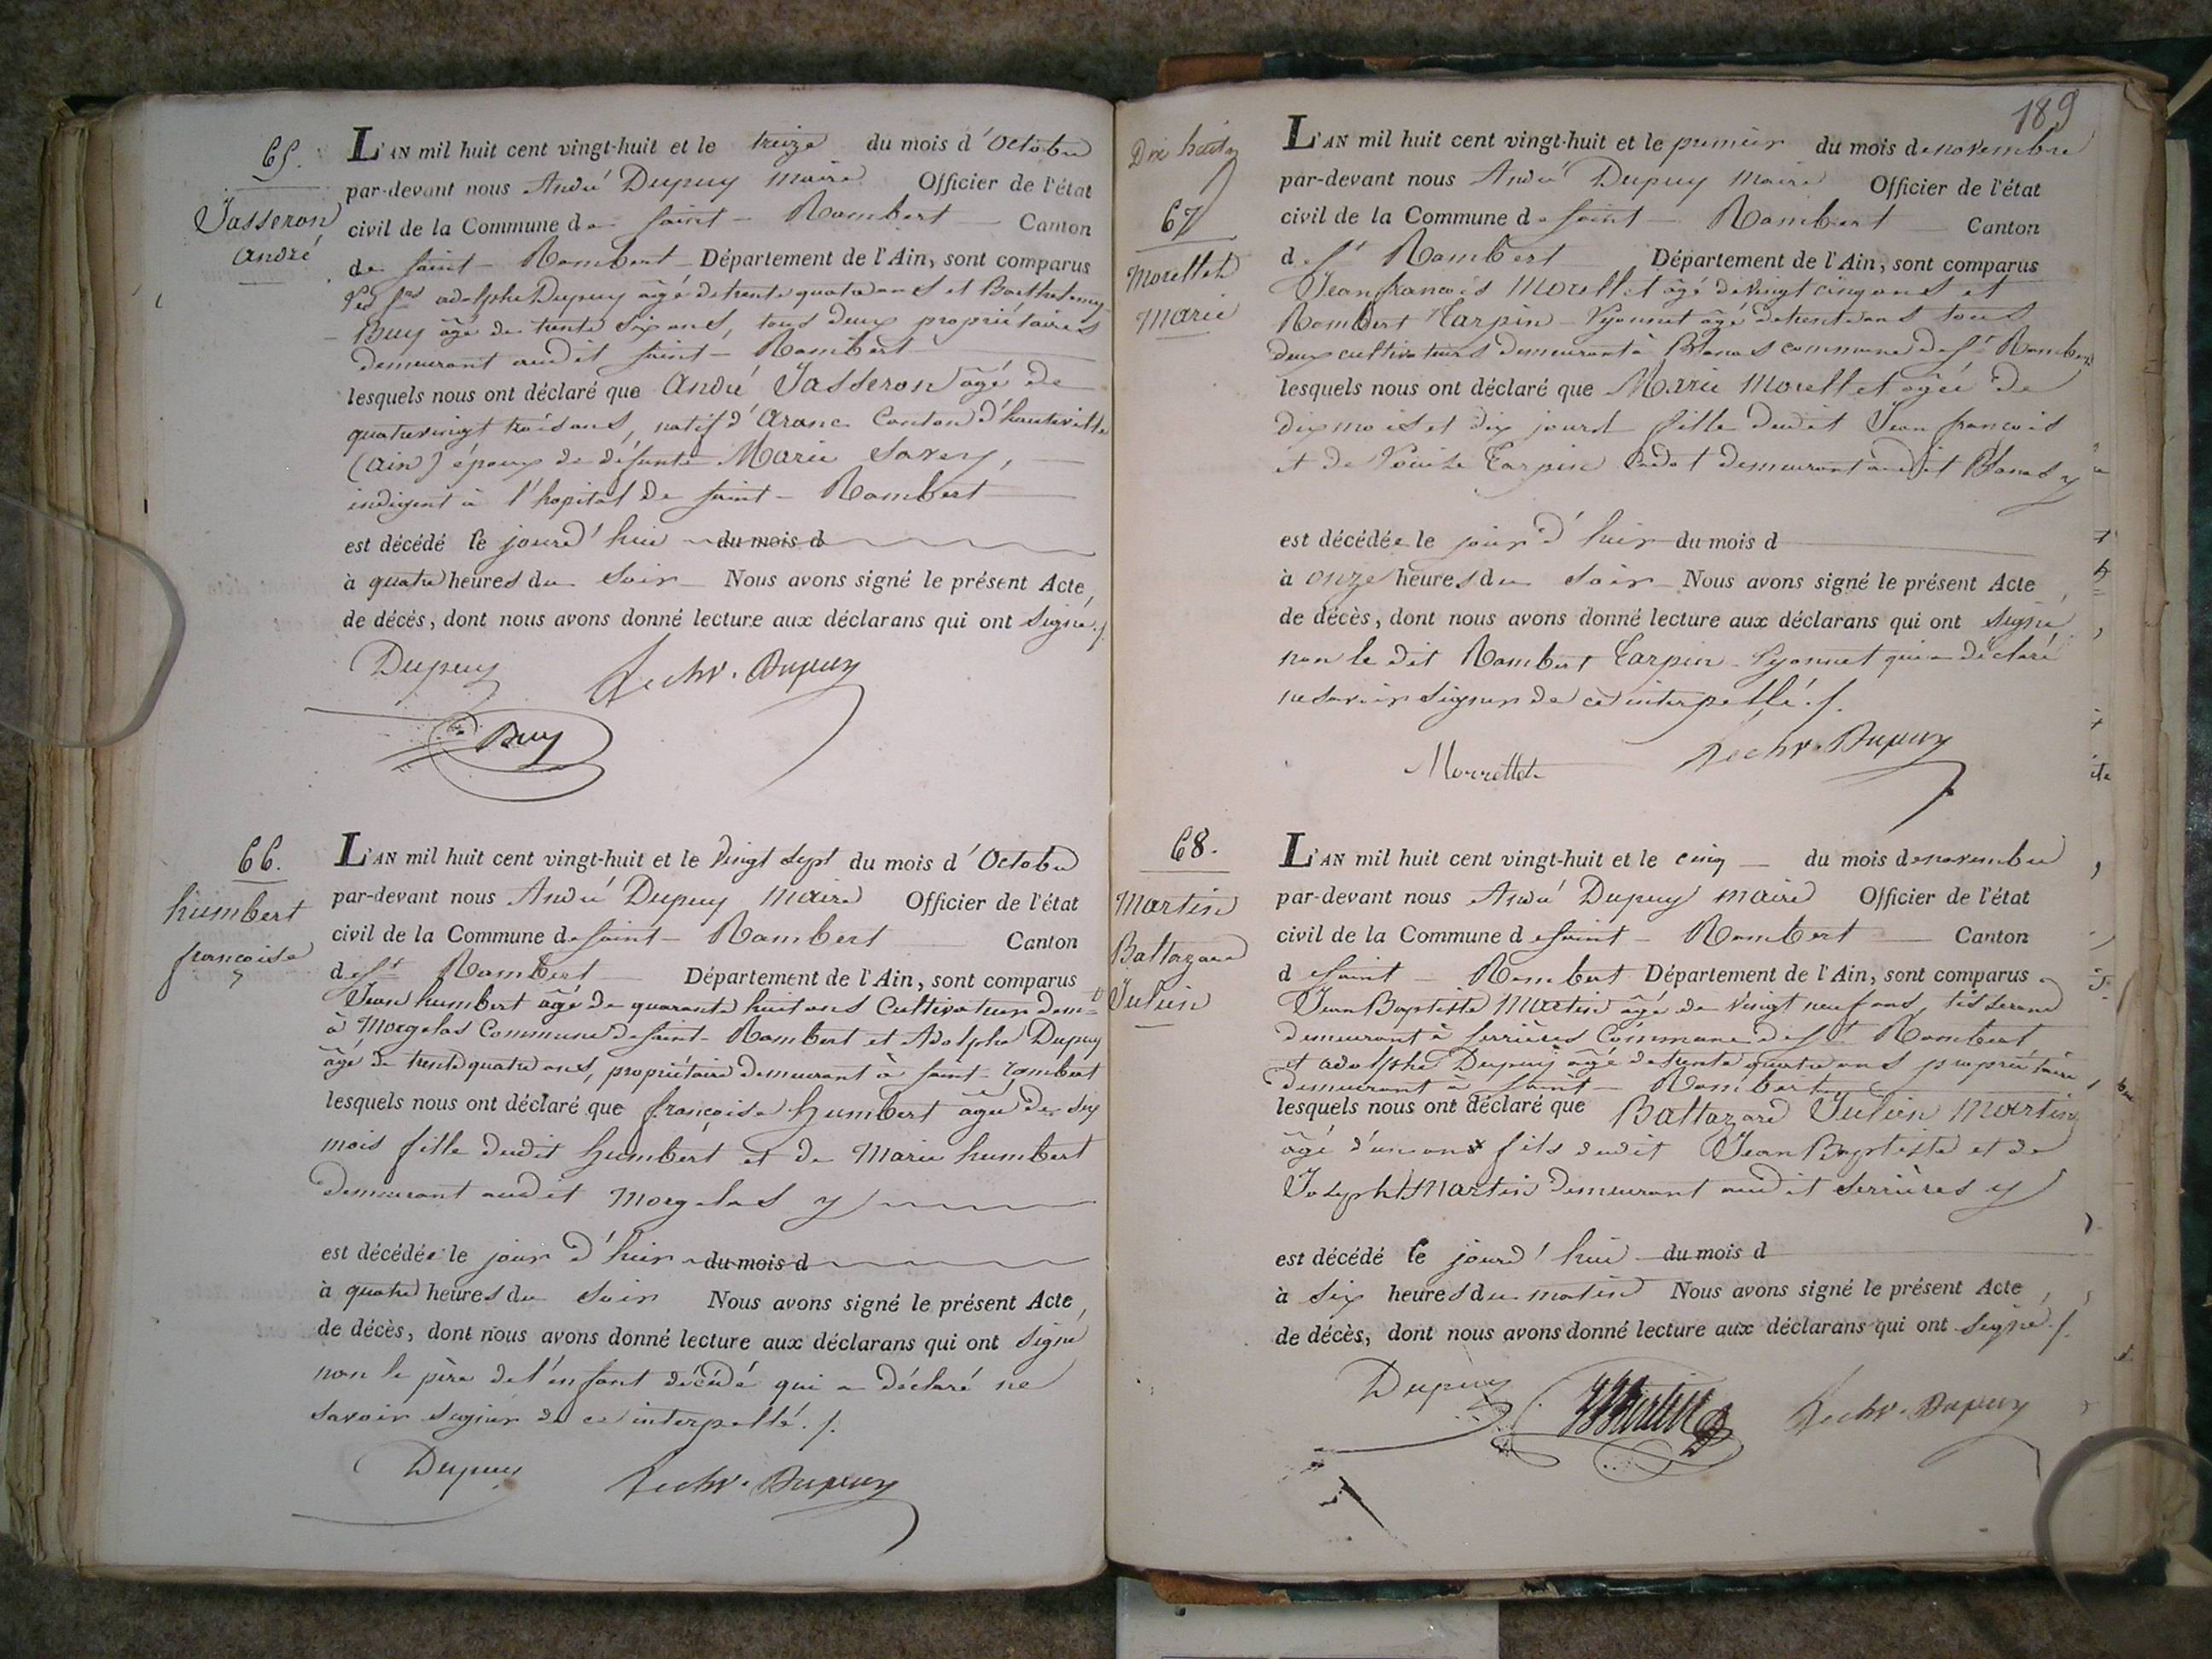 65.
Jasseron
André
L'AN mil huit cent vingt-huit et le treize du mois d'Octobre
par-devant nous André Dupuy Maire Officier de l'état
civil de la Commune de Saint-Rambert Canton
de Saint-Rambert Département de l'Ain, sont comparus
adolphe Dupuy âgé de trente quatre ans et Barthelemy
Buy âgé de trente six ans, tous deux propriétaires
demeurant audit Saint-Rambert
lesquels nous ont déclaré que André Jasseron âgé de
quatrevingt trois ans, natif d'Aranc Canton d'hauteville
(ain) époux de défunte Marie Savey,
indigent à l'hopital de Saint-Rambert
est décédé le jourd'hui du mois d
à quatre heures du soir Nous avons signé le présent Acte
de décès, dont nous avons donné lecture aux déclarans qui ont signé ./.
Dupuy Dupuy
Buy
66.
humbert
francoise
L'AN mil huit cent vingt-huit et le vingt sept du mois d'Octobre
par-devant nous André Dupuy Maire Officier de l'état
civil de la Commune de Saint-Rambert Canton
de St Rambert Département de l'Ain, sont comparus
Jean humbert âgé de quarante huit ans Cultivateur demt
à Morgelas Commune de Saint-Rambert et Adolphe Dupuy
âgé de trente quatre ans, propriétaire demeurant à Saint-rambert
lesquels nous ont déclaré que françoise humbert âgée de six
mois fille dudit humbert et de Marie humbert
demeurant audit Morgelas
est décédée le jour d'huir du mois d
à quatre heures du soir Nous avons signé le présent Acte
de décès, dont nous avons donné lecture aux déclarans qui ont signé
non le père de l'enfant décédé qui a déclaré ne
savoir signer de ce interpellé ./.
Dupuy Dupuy
189
Dix huit
67
Morellet
Marie
L'AN mil huit cent vingt-huit et le premier du mois de novembre
par-devant nous André Dupuy Maire Officier de l'état
civil de la Commune de Saint-Rambert Canton
d St Rambert Département de l'Ain, sont comparus
Jean francois Morellet âgé de vingt cinq ans et
Rambert Tarpin-Lyonnet âgé de trente ans tous
deux cultivateurs demeurant à Blanas commune de St Rambert
lesquels nous ont déclaré que Marie Morellet agée de
dix mois et dix jours fille dudit Jean francois
et de Louise Tarpin Cadet demeurant audit Blanas
est décédée le jour d'huir du mois d
à onze heures du soir Nous avons signé le présent Acte
de décès, dont nous avons donné lecture aux déclarans qui ont signé
non le dit Rambert Tarpin-Lyonnet qui a déclaré
ne savoir signer de ce interpellé ./.
Morrellet Dupuy
68.
Martin
Baltazard
Julien
L'AN mil huit cent vingt-huit et le cinq du mois de novembre
par-devant nous André Dupuy Maire Officier de l'état
civil de la Commune de Saint-Rambert Canton
de Saint-Rambert Département de l'Ain, sont comparus
Jean Baptiste Martin âgé de vingt neuf ans, tisserand
demeurant à Serrières Commune de St Rambert
et adolphe Dupuy âgé de trente quatre ans propriétaire
demeurant à Saint-Rambert
lesquels nous ont déclaré que Baltazard Julien Martin
âgé d'un an fils dudit Jean Baptiste et de
Joseph Martin demeurant audit Serrières
est décédé le jourd'hui du mois d
à six heures du matin Nous avons signé le présent Acte
de décès, dont nous avons donné lecture aux déclarans qui ont signé ./.
Dupuy JBMartin Dupuy